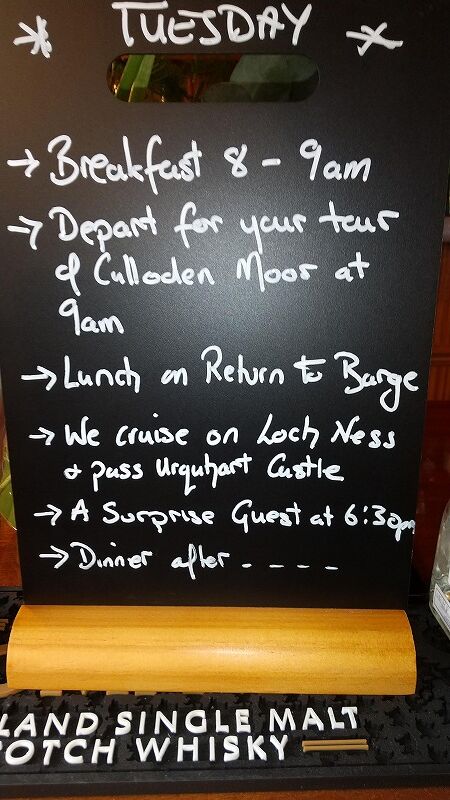 * TUESDAY *
→ Breakfast 8 - 9am
→ Depart for your tour
of Culloden Moor at
9am
→ Lunch on Return to Barge
→ We cruise on Loch Ness
+ pass Urquhart Castle
→ A Surprise Guest at 6:30pm
→ Dinner after - - - -
LAND SINGLE MALT
COTCH WHISKY